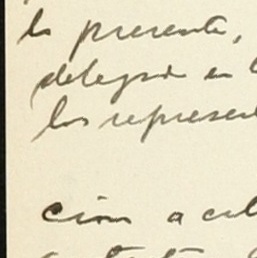 la presente,
delegado en l
los represent
cion a cel